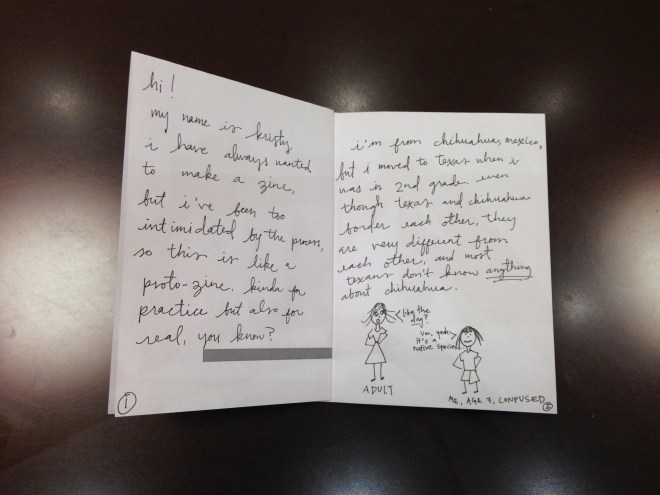 hi!
my name is kristy.
i have always wanted
to make a zine,
but i've been too
intimidated by the process,
so this is like a
proto-zine. kinda for
practice but also for
real, you know?
1
i'm from chihuahua, mexico,
but i moved to texas when i
was in 2nd grade. even
though texas and chihuahua
border each other, they
are very different from
each other, and most
texans don't know anything
about chihuahua.
like the
dog?
um, yeah
it's a
native species
ADULT
ME, AGE 7, CONFUSED
2